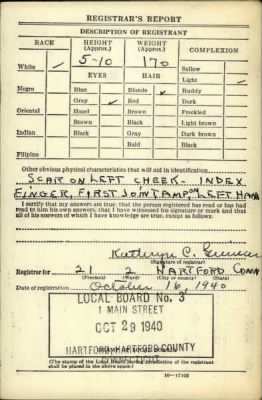 REGISTRAR'S REPORT
DESCRIPTION OF REGISTRANT
RACE HEIGHT (Approx.) WEIGHT (Approx.) COMPLEXION
White ✓ 5-10 170 Sallow
EYES HAIR Light ✓
Negro Blue Blonde ✓ Ruddy
Gray ✓ Red Dark
Oriental Hazel Brown Freckled
Brown Black Light brown
Indian Black Gray Dark brown
Bald Black
Filipino
Other obvious physical characteristics that will aid in identification
SCAR ON LEFT CHEEK. INDEX
FINGER, FIRST JOINT AMP ON LEFT HAND
I certify that my answers are true; that the person registered has read or has had
read to him his own answers; that I have witnessed his signature or mark and that
all of his answers of which I have knowledge are true, except as follows:
Kathryn C.
(Signature of registrar)
Registrar for 21 2 HARTFORD CONN
(Precinct) (Ward) (City or county) (State)
Date of registration October 16, 1940
LOCAL BOARD No. 3
1 MAIN STREET
OCT 29 1940
HARTFORD HARTFORD COUNTY
CONNECTICUT
(The stamp of the Local Board having jurisdiction of the registrant
shall be placed in the above space.)